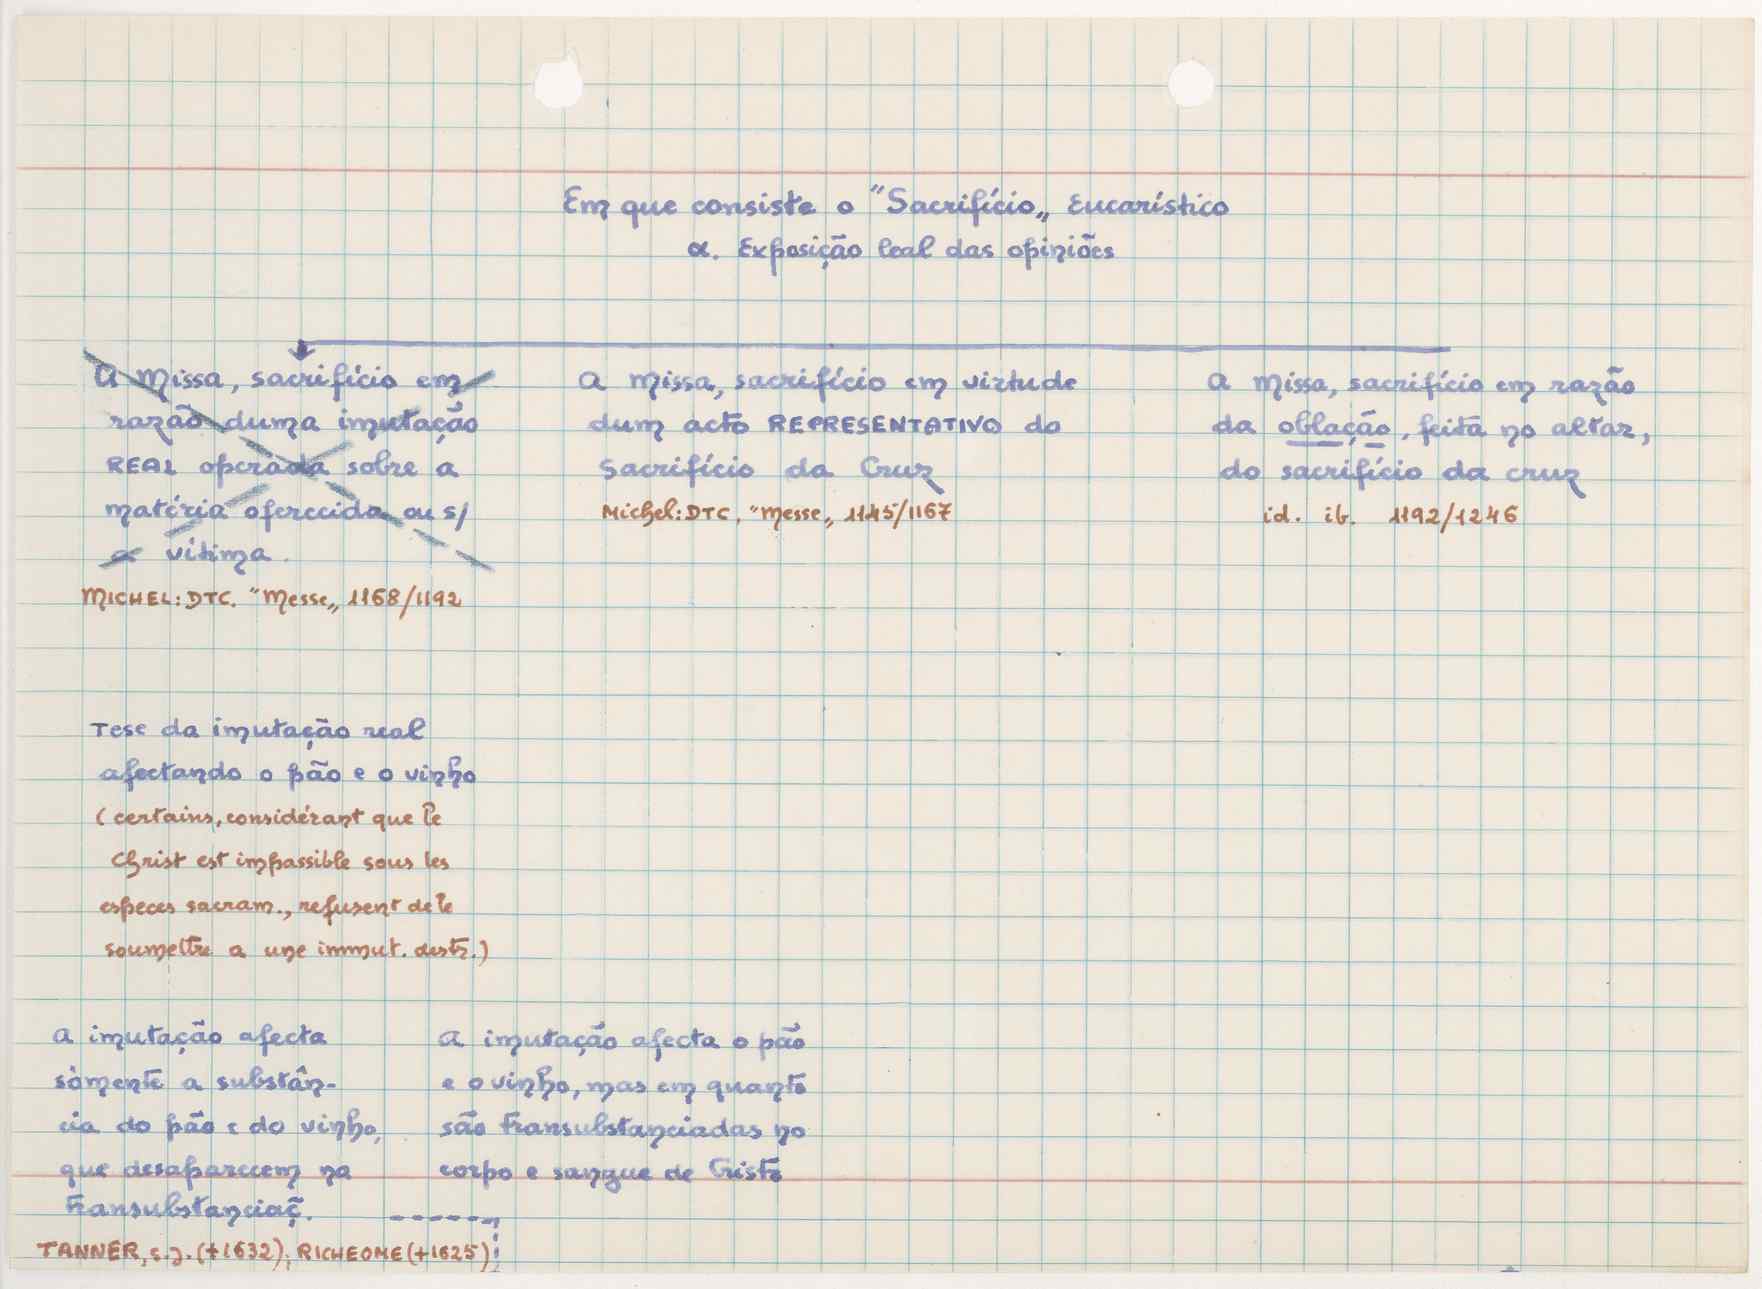 Em que consiste o "Sacrifício„ Eucarístico
α. Exposição leal das opiniões
A Missa, sacrifício em
razão duma imutação
REAL operada sobre a
matéria oferecida ou s/
a vítima.
MICHEL: DTC. "Messe„ 1168/1192
A Missa, sacrifício em virtude
dum acto REPRESENTATIVO do
Sacrifício da Cruz
Michel: DTC, "Messe„ 1145/1167
A Missa, sacrifício em razão
da oblação, feita no altar,
do sacrifício da cruz
id. ib. 1192/1246
Tese da imutação real
afectando o pão e o vinho
(certains, considérant que le
Christ est impassible sous les
espèces sacram., refusent de le
soumettre a une immut. destr.)
A imutação afecta
sòmente a substân-
cia do pão e do vinho,
que desaparecem na
Transubstanciaç̃.
TANNER, s.j. (+1632); RICHEOME (+1625)
A imutação afecta o pão
e o vinho, mas em quanto
são transubstanciadas no
corpo e sangue de Cristo